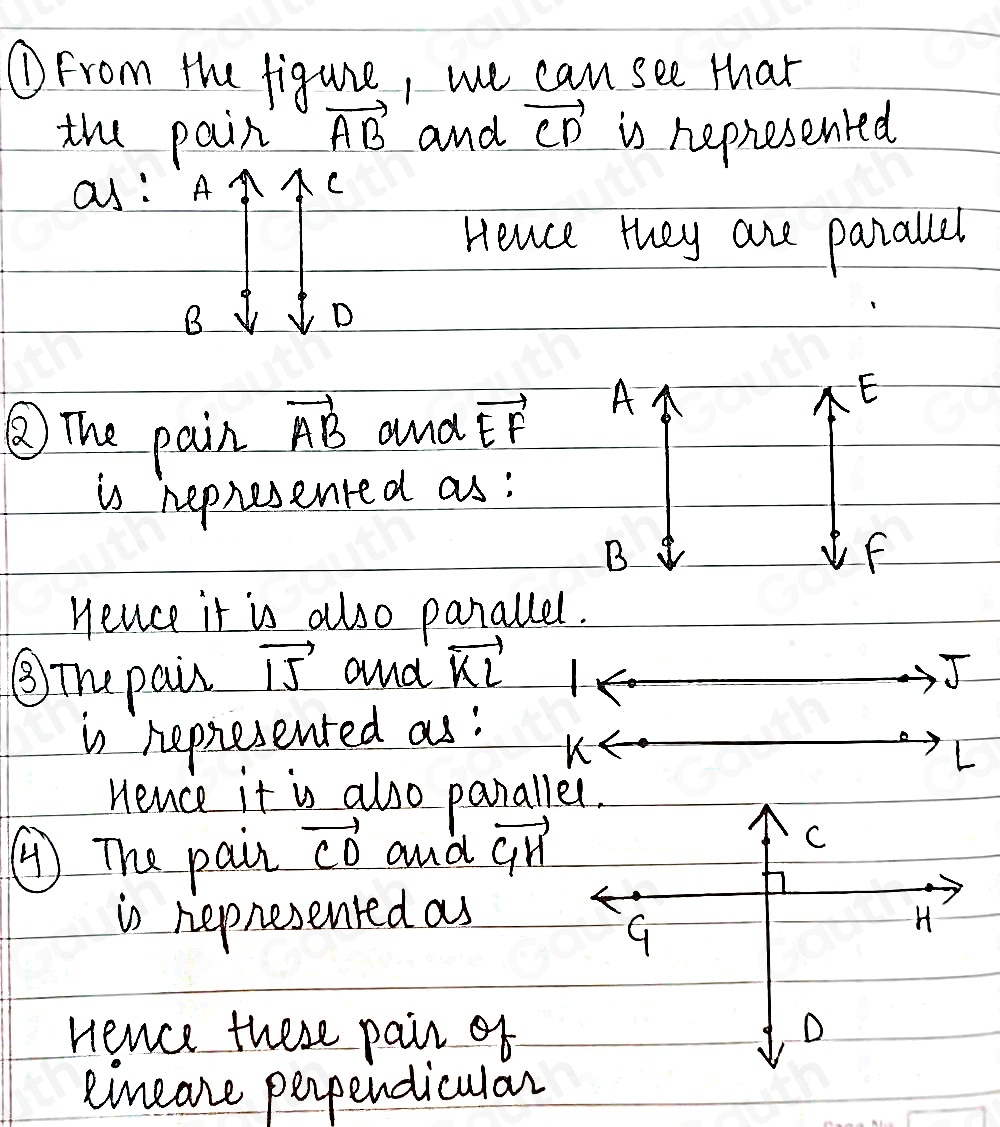 ① From the figure, we can see that
the pair AB and CD is represented
as: A C
Hence they are parallel
B D
.
A E
② The pair AB and EF
is represented as:
B F
Hence it is also parallel.
③ The pair IJ and KL I J
is represented as: K L
Hence it is also parallel.
④ The pair CD and GH C
is represented as G H
Hence these pair of D
lineare perpendicular